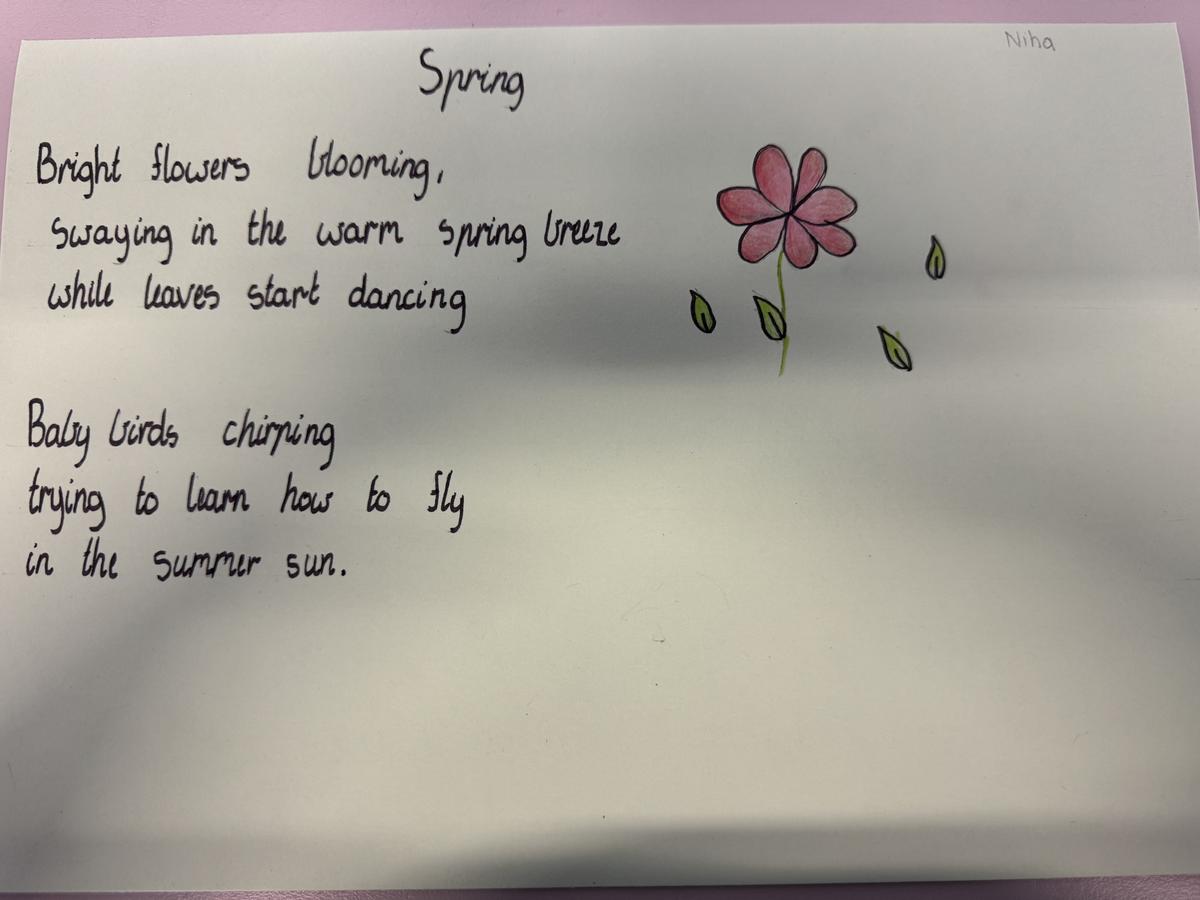 Niha
Spring
Bright flowers blooming,
swaying in the warm spring breeze
while leaves start dancing
Baby birds chirping
trying to learn how to fly
in the summer sun.